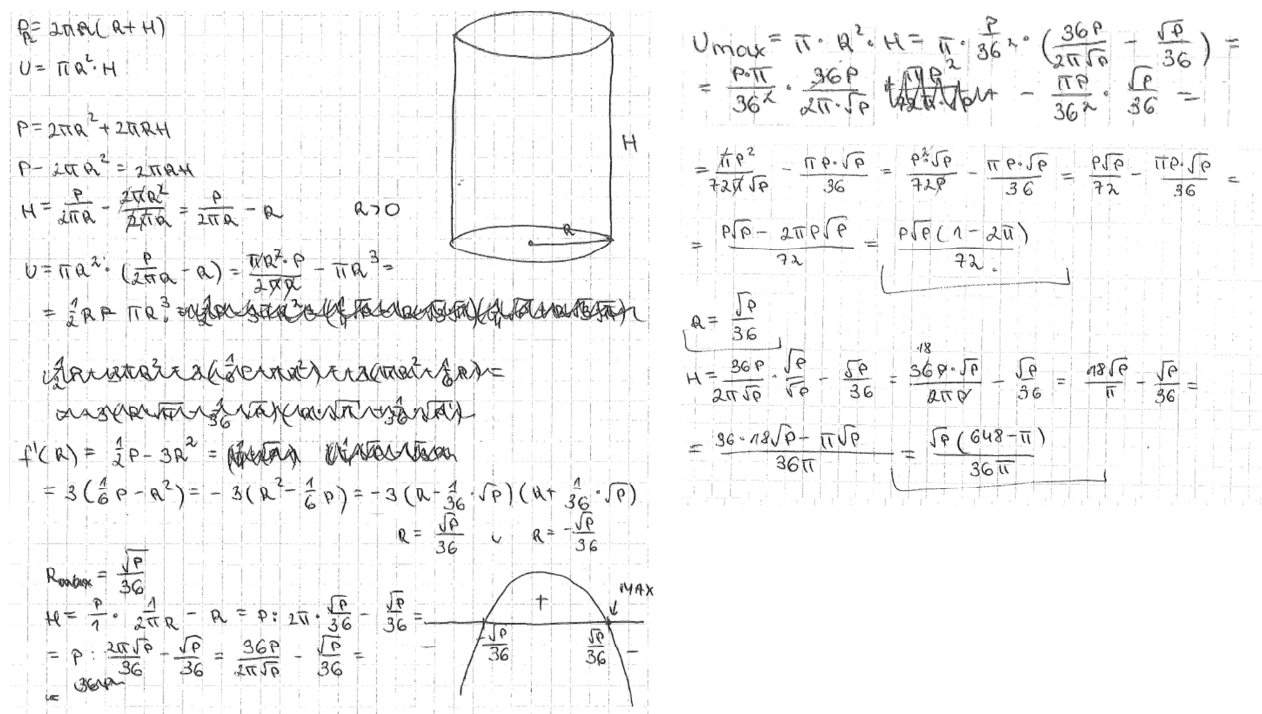 P = 2πR(R+H)
V = πR²·H
P = 2πR² + 2πRH
P - 2πR² = 2πRH
H = P/2πR - 2πR²/2πR = P/2πR - R   R>0
V = πR²·(P/2πR - R) = πR²·P/2πR - πR³ =
= 1/2 RP - πR³
f'(R) = 1/2 P - 3R² =
= 3(1/6 P - R²) = -3(R² - 1/6 P) = -3(R - 1/36·√P)(R + 1/36·√P)
R = √P/36 ∨ R = -√P/36
Rmax = √P/36
H = P/1 · 1/2πR - R = P : 2π·√P/36 - √P/36 =
= P : 2π√P/36 - √P/36 = 36P/2π√P - √P/36 =
=
H
R
+
MAX
-√P/36
√P/36
-
-
Vmax = π·R²·H = π·P/36²·(36P/2π√P - √P/36) =
= P·π/36² · 36P/2π·√P - πP/36² · √P/36 =
= πP²/72π√P - πP·√P/36 = P²·√P/72P - πP·√P/36 = P√P/72 - πP·√P/36 =
= P√P - 2πP√P/72 = P√P(1-2π)/72
R = √P/36
H = 36P/2π√P · √P/√P - √P/36 = 18 36P·√P/2πP - √P/36 = 18√P/π - √P/36 =
= 36·18√P - π√P/36π = √P(648-π)/36π